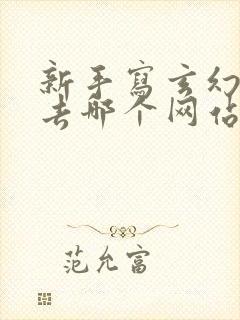 新手寫玄幻
去哪个网站
范允富